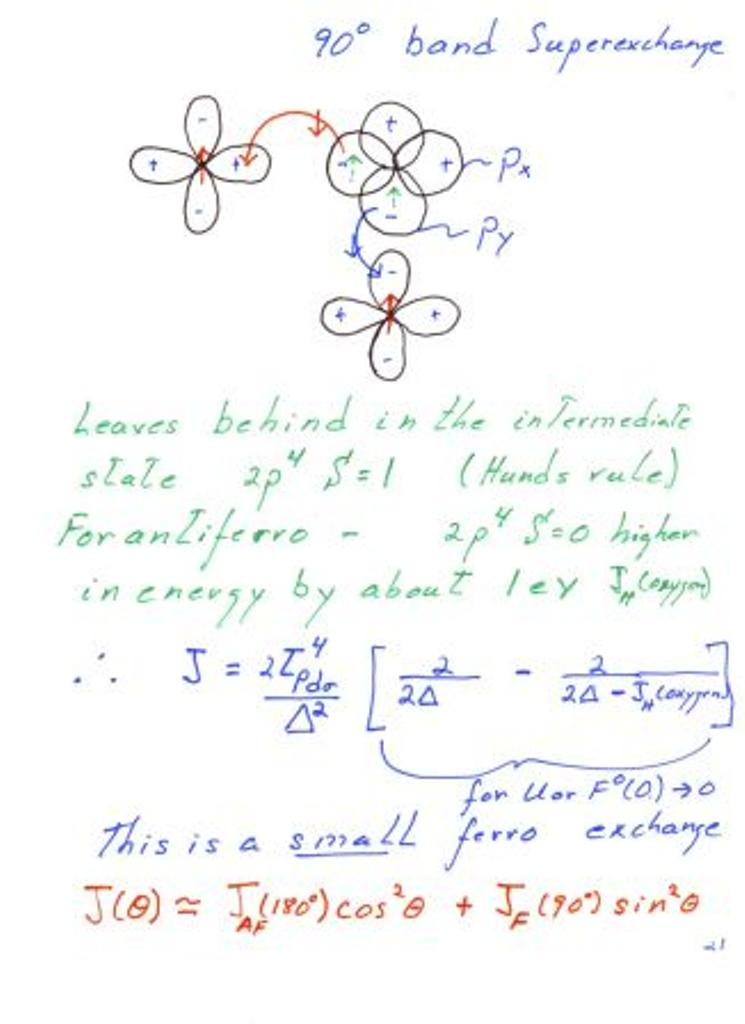 90° band Superexchange
- + + - + Px
- - Py
-
+ +
-
Leaves behind in the intermediate
state 2p⁴ S=1 (Hunds rule)
For antiferro - 2p⁴ S=0 higher
in energy by about 1eV J_H(oxygen)
∴ J = 2T_pdσ⁴/Δ² [ 2/2Δ - 2/(2Δ - J_H(oxygen)) ]
for U or F⁰(0) → 0
This is a small ferro exchange
J(θ) ≃ J_AF(180°)cos²θ + J_F(90°)sin²θ
21